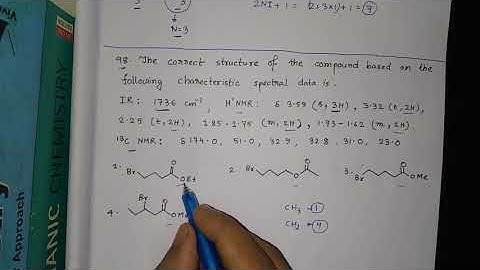 2NI + 1 = (2×3×1)+1 = 7
N=3
98. The correct structure of the compound based on the
following charecteristic spectral data is.
IR: 1736 cm⁻¹, H¹NMR: δ 3.59 (s, 3H), 3.32 (t, 2H),
2.25 (t, 2H), 1.85-1.75 (m, 2H), 1.73-1.62 (m, 2H)
¹³C NMR: δ 174.0, 51.0, 32.9, 32.8, 31.0, 23.0
1. Br O OEt 2. Br O O 3. Br O OMe
4. Br O OMe CH₃ - 1
CH₂ - 4
ANIC CHEMISTRY